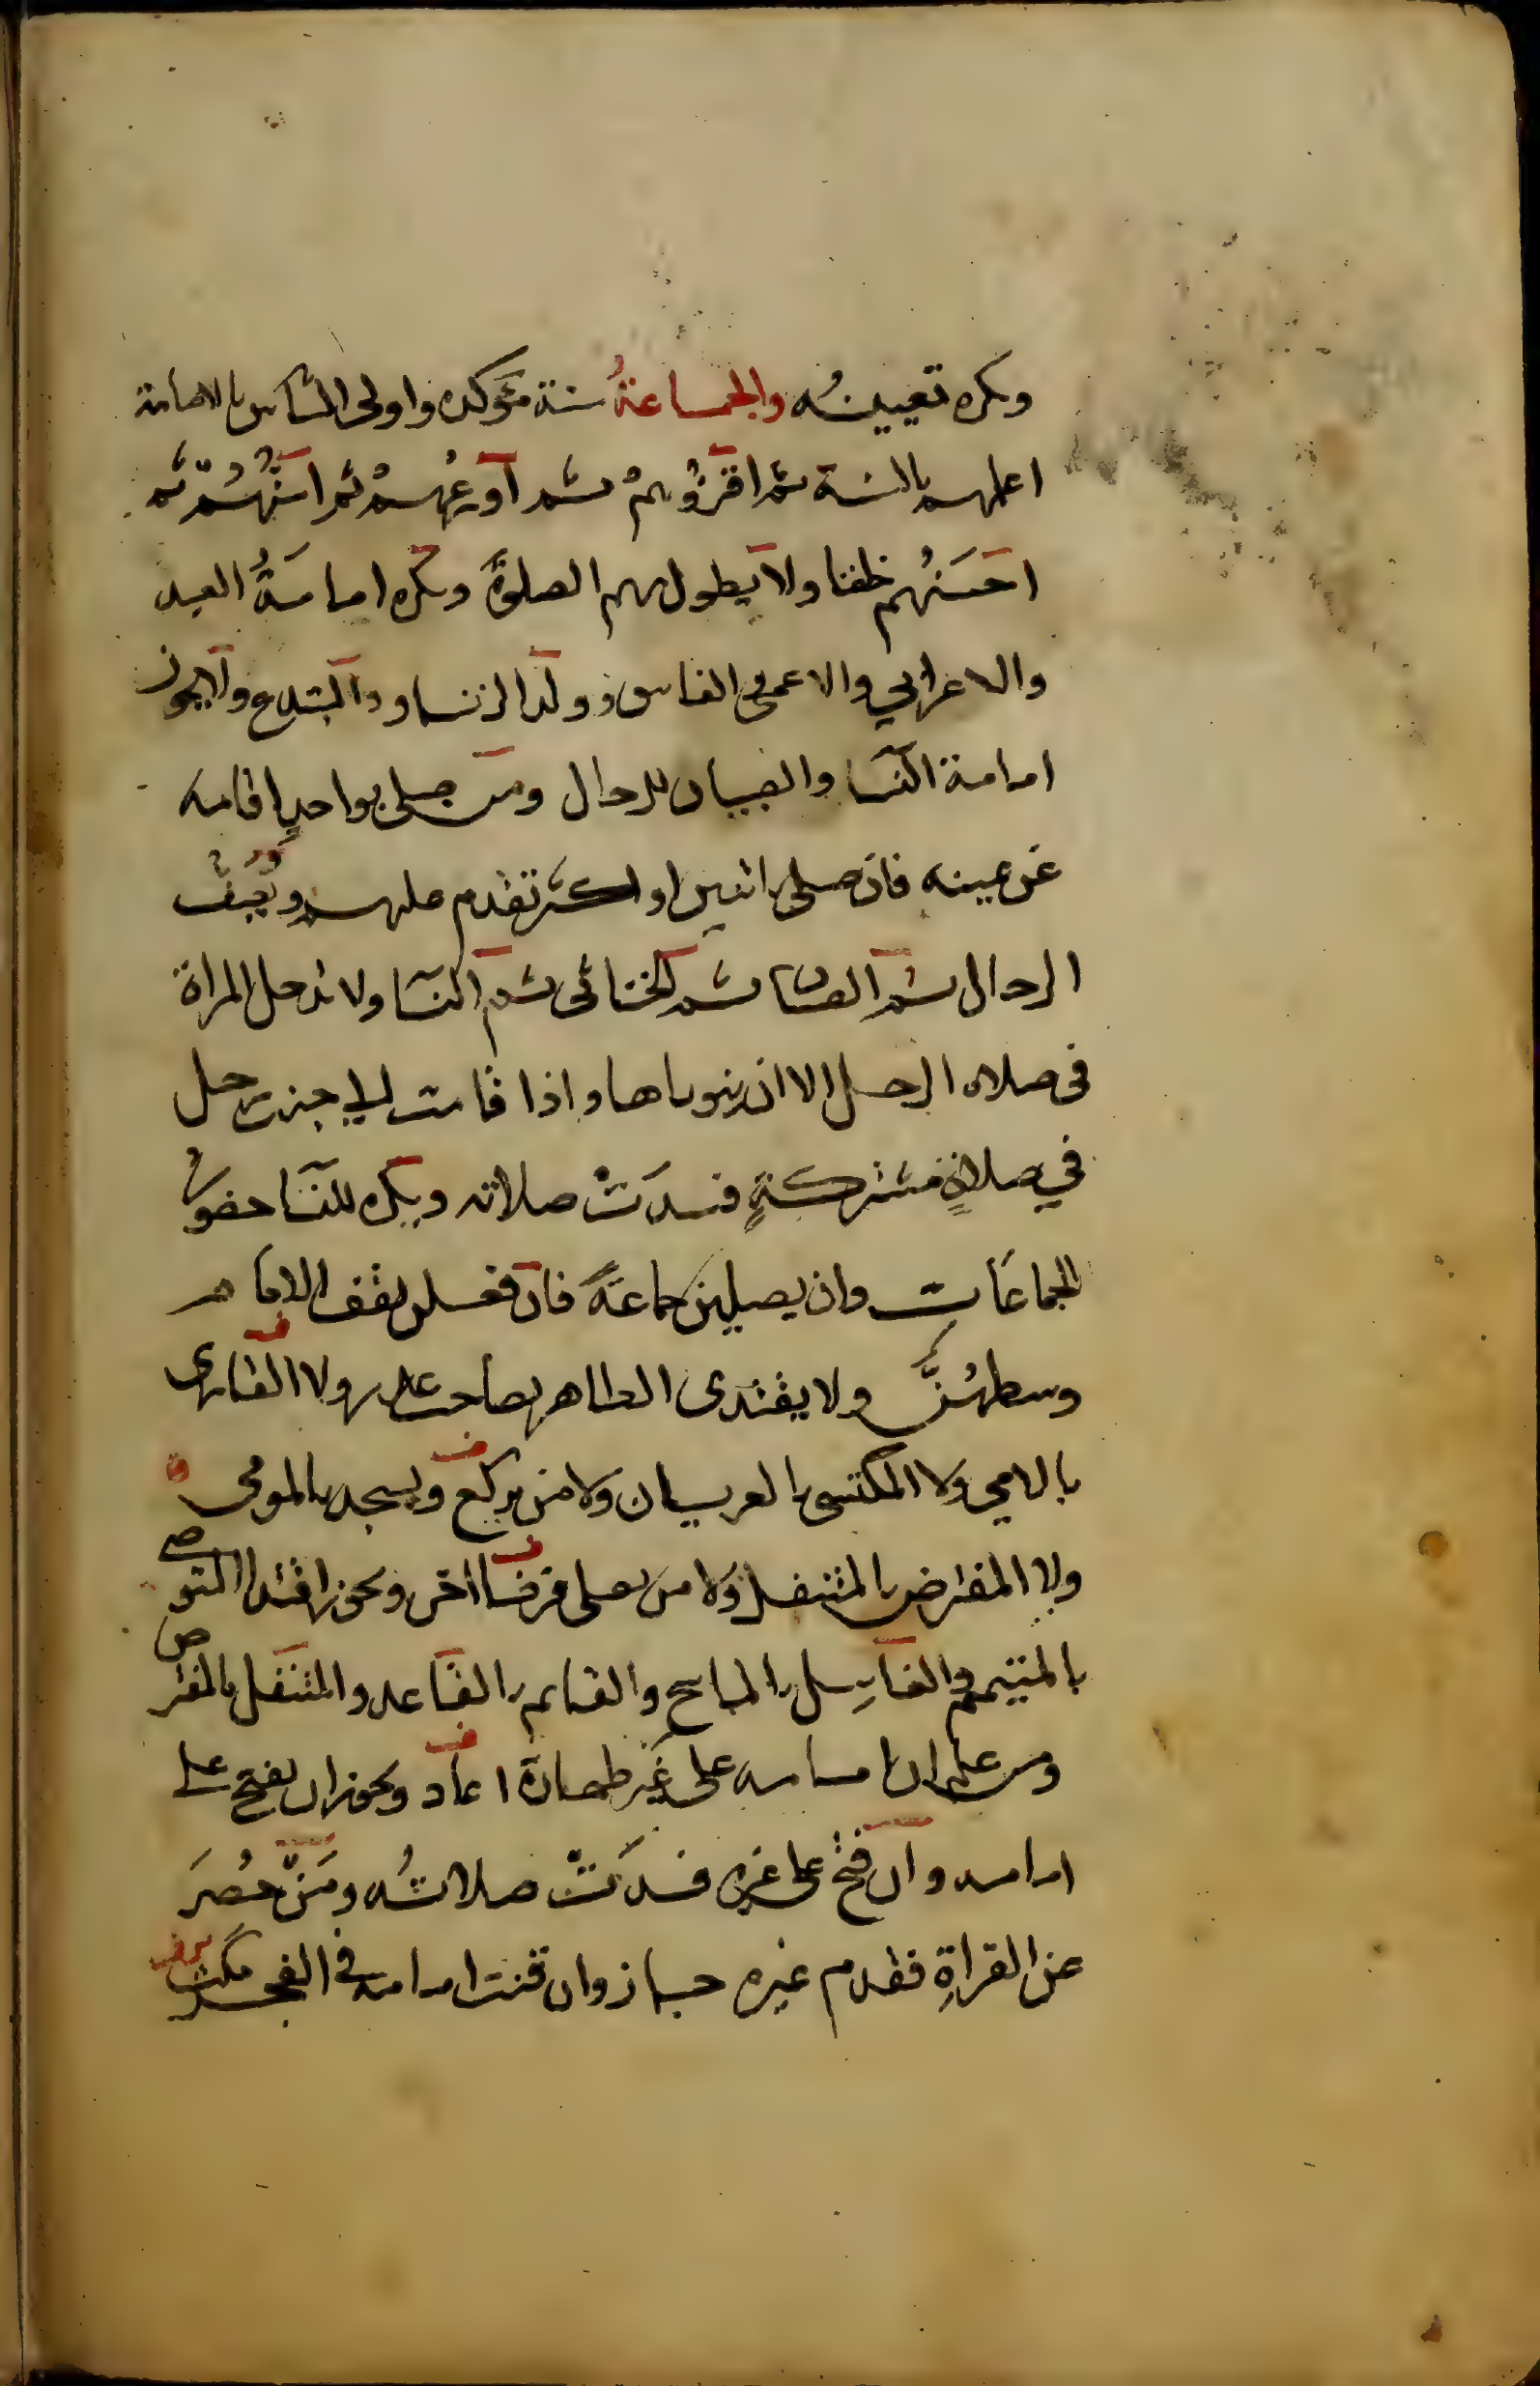 ويكره تعيينُه والجماعةُ سنة مؤكده واولى الناس بالامامة
اعلمهم بالسنة ثم اقرؤهمْ ثم اَورعُهمْ ثم اسَنُّهُمْ ثم
احسَنُهم خلقا ولا يطول بهم الصلوةَ ويكره امامةُ العبد
والاعرابي والاعمى والفاسق وولد الزنا والمبتدع ولا يجوز
امامة النسا والصبيان للرجال ومن صلى بواحدٍ اقامه
عن يمينه فان صلى باثنين او اكثر تقدم عليهم ويَصُفُّ
الرجال ثم الصبيان ثم الخناثى ثم النسا ولا تدخل المراة
فى صلاة الرجل الا ان ينويها واذا قامت الى جنب رجل
في صلاةٍ مشتركةٍ فسدَتْ صلاته ويكره للنسا حضورُ
الجماعَات وان يصلين جماعةً فان فعلن يقف الامام
وسطهُنَّ ولا يقتدى الطاهر بصاحب عذر ولا القارى
بالامي ولا المكتسى بالعريان ولا من يركع ويسجد بالمومى
ولا المفترض بالمتنفل ولا من يصلى فرضا اخر ويجوز اقتدا المتوضى
بالمتيمم والغاسِل بالماسح والقايم بالقاعد والمتنفل بالمفترض
ومن علم ان امامه على غَير طهارة اعاد ويجوز ان يفتح على
امامه وان فتحْ على غيره فسدَتْ صلاتُه ومَنْ حُصِرَ
عن القراةِ فقدم غيره جاز وان قنت امامه في الفجر سكت